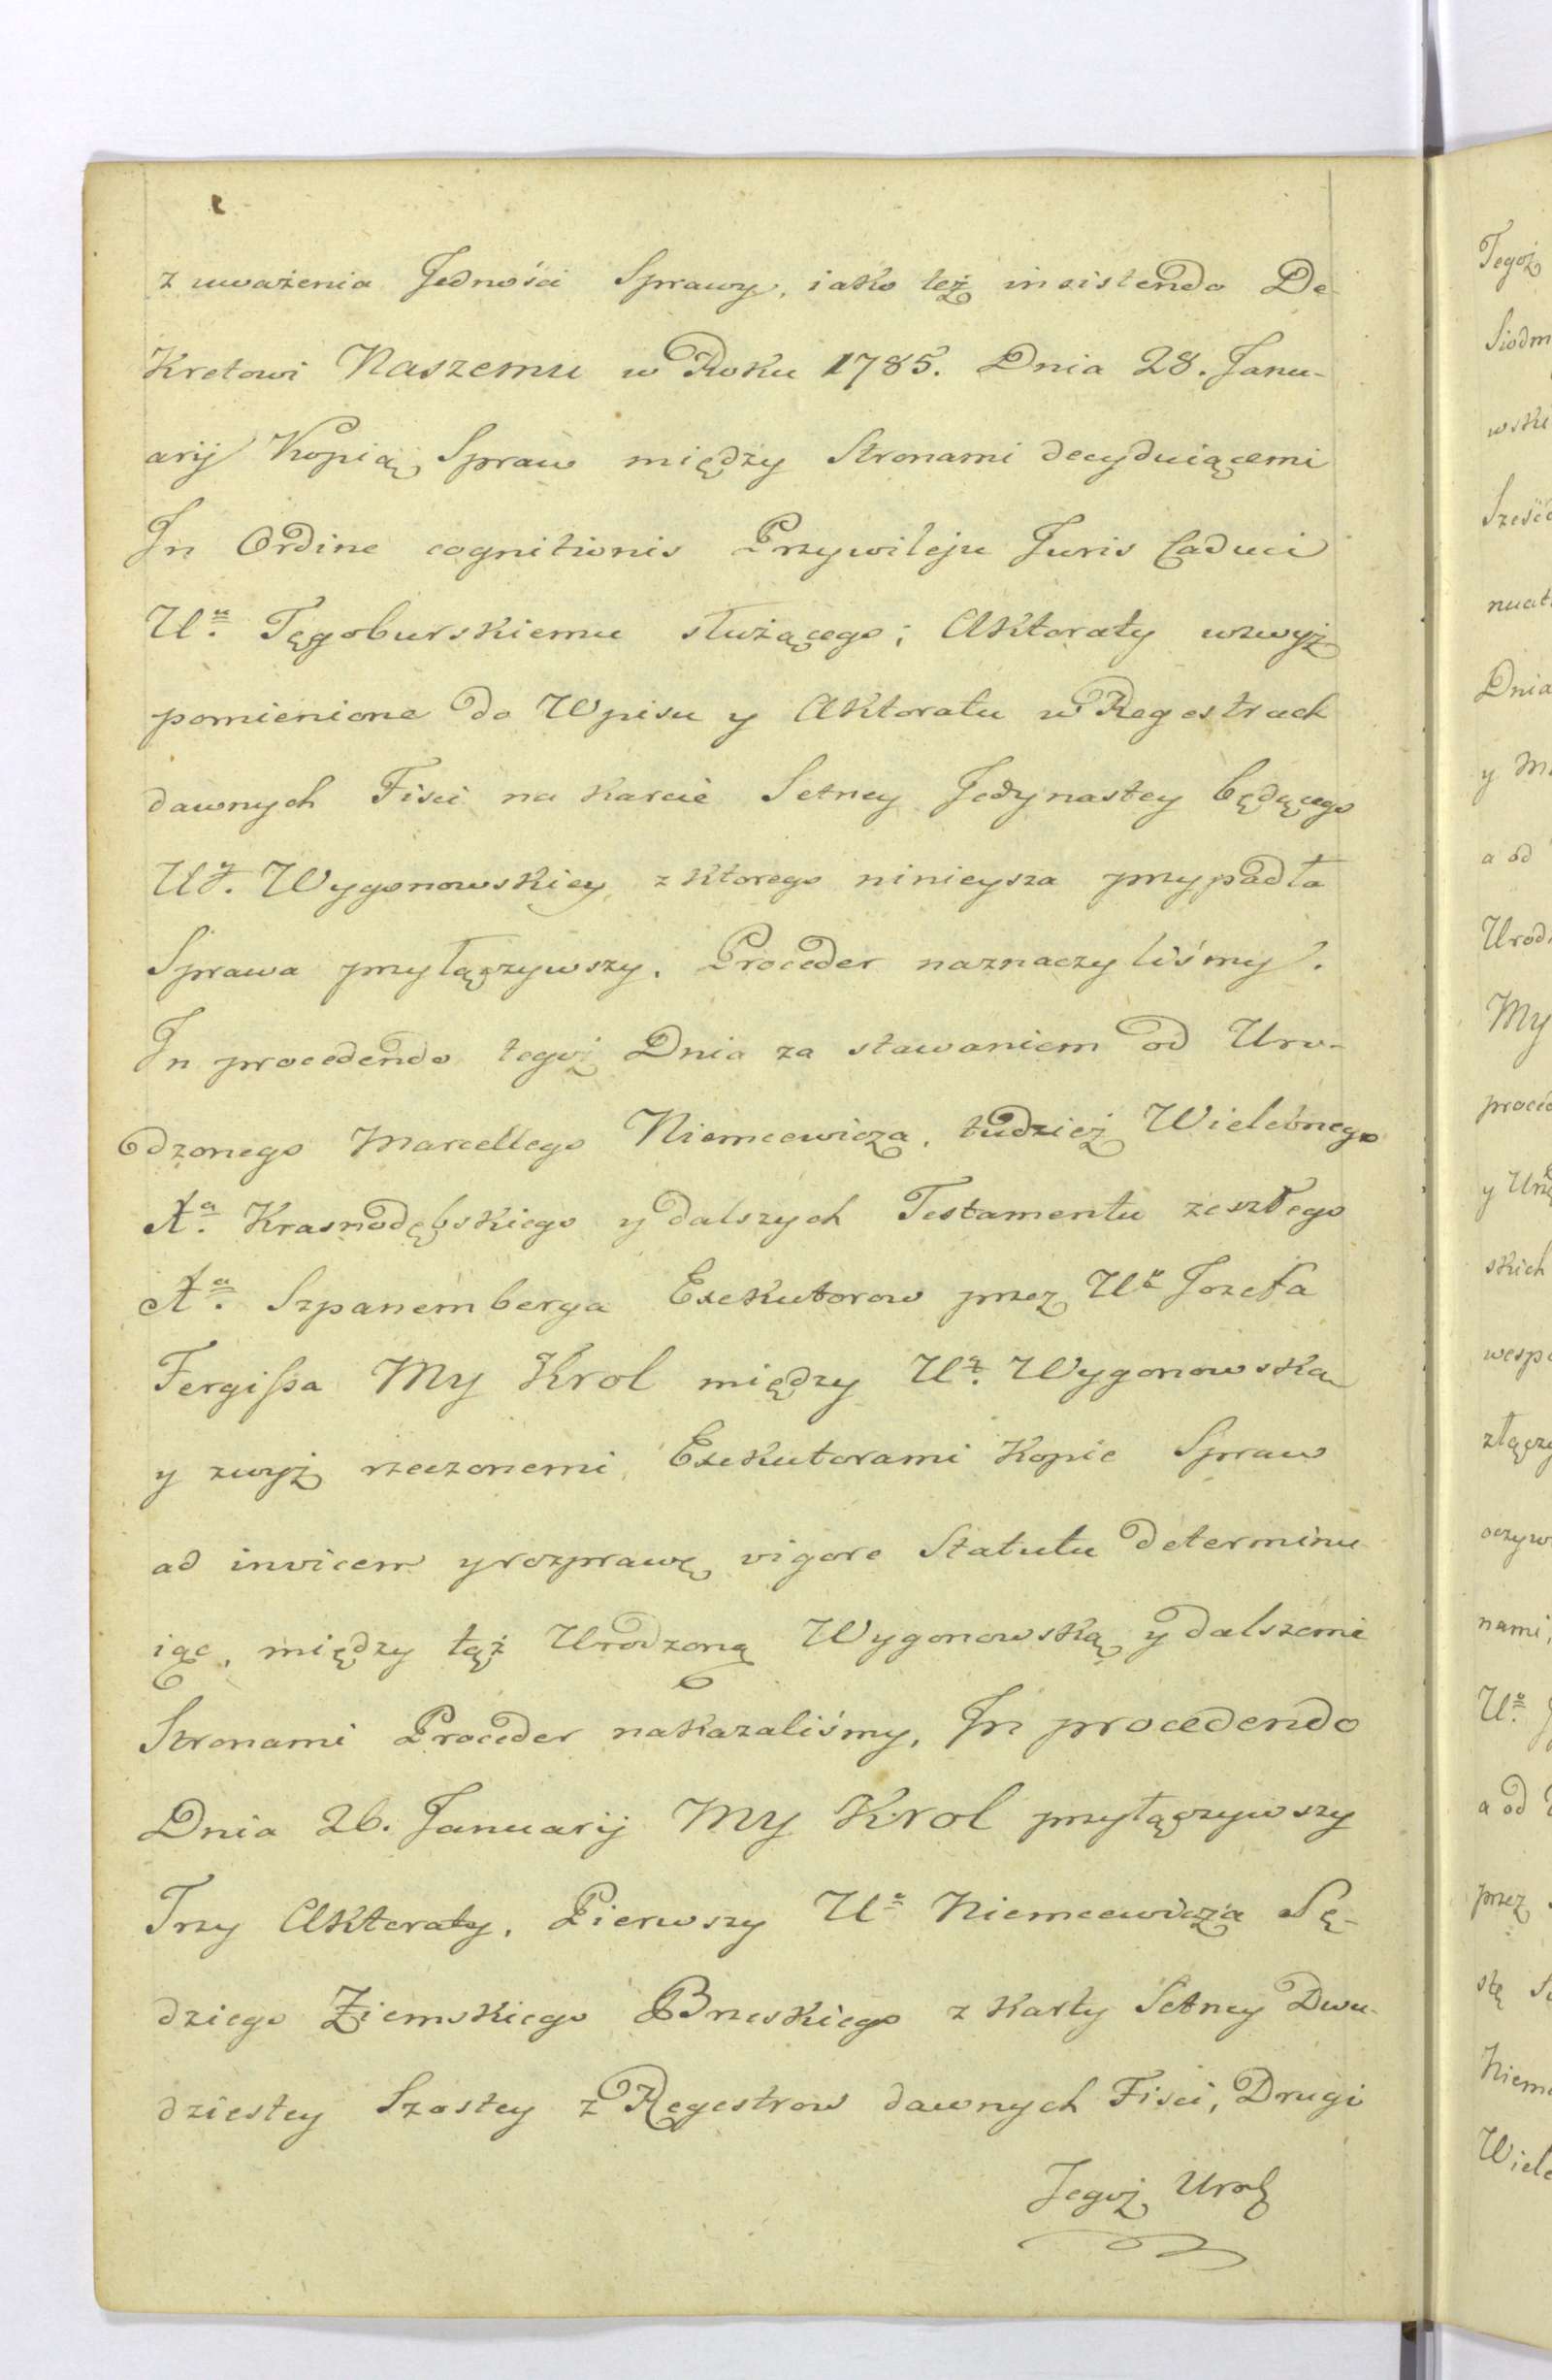 z uważenia Jedności Sprawy, iako też insistendo De-
kretowi Naszemu w Roku 1785. Dnia 28. Janu-
arij Kopią Spraw między Stronami decyduiącemi
In Ordine cognitionis Przywileju Juris Caduci
Uu. Tęgoburskiemu służącego; Aktoraty wzwyż
pomienione do Wpisu y Aktoratu w Regestrach
dawnych Fisci na karcie Setney Jedynastey będącego
Uy. Wygonowskiey, z ktorego ninieysza przypadła
Sprawa przyłączywszy, Proceder naznaczyliśmy.
In procedendo tegoż Dnia za stawaniem od Uro-
dzonego Marcellego Niemcewicza, tudzież Wielebnego
Xa. Krasnodębskiego y dalszych Testamentu zeszłego
Xa. Szpanemberga Exekutorow przez Ua Jozefa
Fergissa My Krol między Uą. Wygonowską
y zwyż rzeczonemi Exekutorami Kopie Spraw
ad invicem y rozprawę vigore Statutu determinu
iąc, między tąż Urodzoną Wygonowską y dalszemi
Stronami Proceder nakazaliśmy, In procedendo
Dnia 26. Januarij My Krol przyłączywszy
Trzy Aktoraty, Pierwszy Ua Niemcewicza Sę-
dziego Ziemskiego Brzeskiego z karty Setney Dwu-
dziestey Szostey z Regestrow dawnych Fisci, Drugi
Tegoż Urodz
Tegoż
Siodm
wski
Sześć
nuat
Dnia
y M
a od
Urod
My
proced
y Ur
skich
wesp
złączy
oczyw
nami,
Uo.
a od
przez
stę S
Niem
Wiele